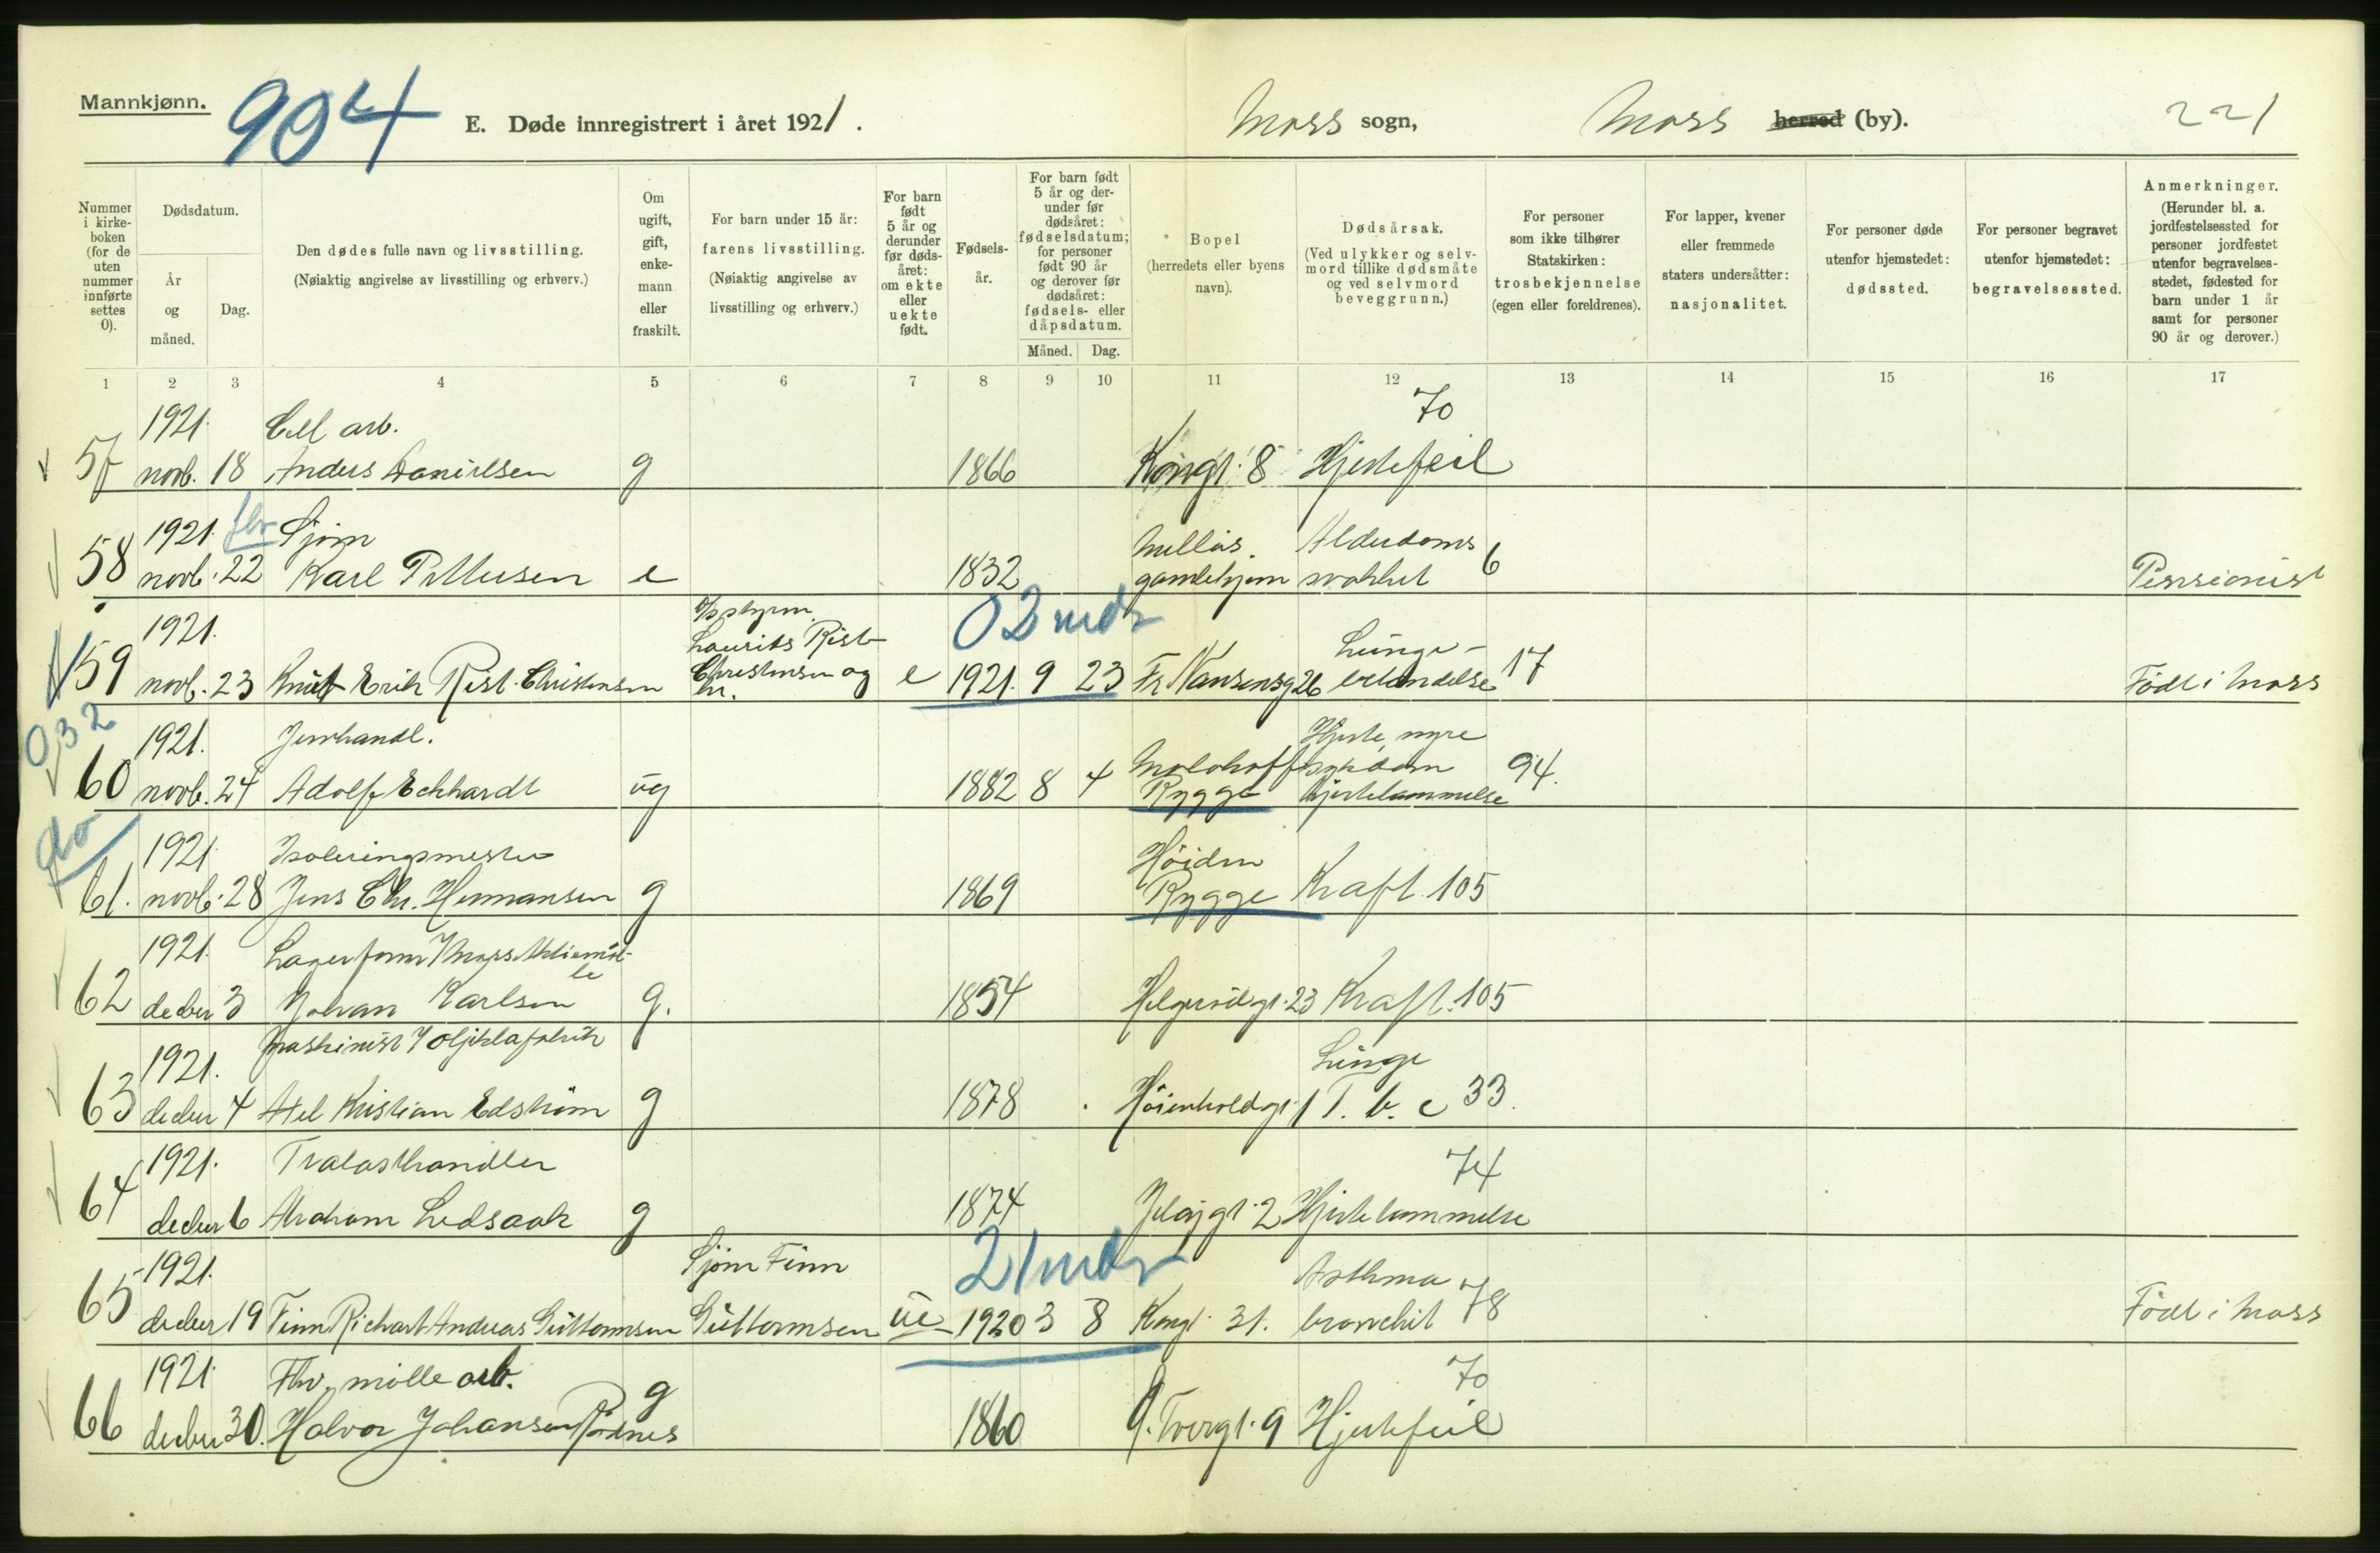 Mannkjønn.
904
E. Døde innregistrert i året 1921.
Moss sogn,
Moss herred (by).
221
Nummer i kirke-boken (for de uten nummer innførte settes 0).
Dødsdatum.
År og måned.
Dag.
Den dødes fulle navn og livsstilling.
(Nøiaktig angivelse av livsstilling og erhverv.)
Om ugift, gift, enke-mann eller fraskilt.
For barn under 15 år: farens livsstilling.
(Nøiaktig angivelse av livsstilling og erhverv.)
For barn født 5 år og derunder før døds-året: om ekte eller uekte født.
Fødsels-år.
For barn født 5 år og der-under før dødsåret: fødselsdatum; for personer født 90 år og derover før dødsåret: fødsels- eller dåpsdatum.
Måned.
Dag.
Bopel
(herredets eller byens navn).
Dødsårsak.
(Ved ulykker og selv-mord tillike dødsmåte og ved selvmord beveggrunn.)
For personer som ikke tilhører Statskirken: trosbekjennelse (egen eller foreldrenes).
For lapper, kvener eller fremmede staters undersåtter: nasjonalitet.
For personer døde utenfor hjemstedet: dødssted.
For personer begravet utenfor hjemstedet: begravelsessted.
Anmerkninger.
(Herunder bl. a. jordfestelsessted for personer jordfestet utenfor begravelses-stedet, fødested for barn under 1 år samt for personer 90 år og derover.)
1 2 3 4 5 6 7 8 9 10 11 12 13 14 15 16 17
1921. Cell arb. 70
57 novb. 18 Anders Danielsen g 1866 Kongt. 8 Hjertefeil
1921. fhv Sjøm Alderdoms
58 novb. 22 Karl Pettersen e 1832 gamlehjem svakhet 6 Pensionist
02 mdr
1921. Laurits Rist Lunge-
59 novb. 23 Knut Erik Rist-Christensen Christensen og e 1921. 9 23 Fr. Nansensg 26 betendelse 17 Født i Moss
032
1921. Jernhandl. Hjerte, nyre
60 novb. 24 Adolf Eckhardt ug 1882 8 4 Rygge sygdom hjertelammelse 94.
do
1921. Isoleringsmester Høiden
61. novb. 28 Jens Chr. Hermansen g 1869 Rygge Kræft. 105
1921. Lagerform. i Moss Aktiemøl-
le
62 decbr 3 Johan Karlsen g. 1854 Helgerødgt. 23 Kræft. 105
1921. Maskinist i Oljeklæfabrik Lunge
63 decbr 4 Axel Kristian Edstrøm g 1878 Høienholdgt. 1 T. b. c 33.
1921. Trælasthandler 74
64 decbr 6 Abraham Ledsaak g 1874 Jeløygt. 2 Hjertelammelse
21 mdr
1921. Sjøm Finn Asthma
65 decbr 19 Finn Richart Andreas Guttormsen Guttormsen ue 1920 3 8 Kongt. 31. bronchit 78 Født i Moss
1921. Fhv. mølle arb. 70
66 decbr 30. Halvor Johansen Rødnes g 1860 Ø. Tvergt. 9 Hjertefeil